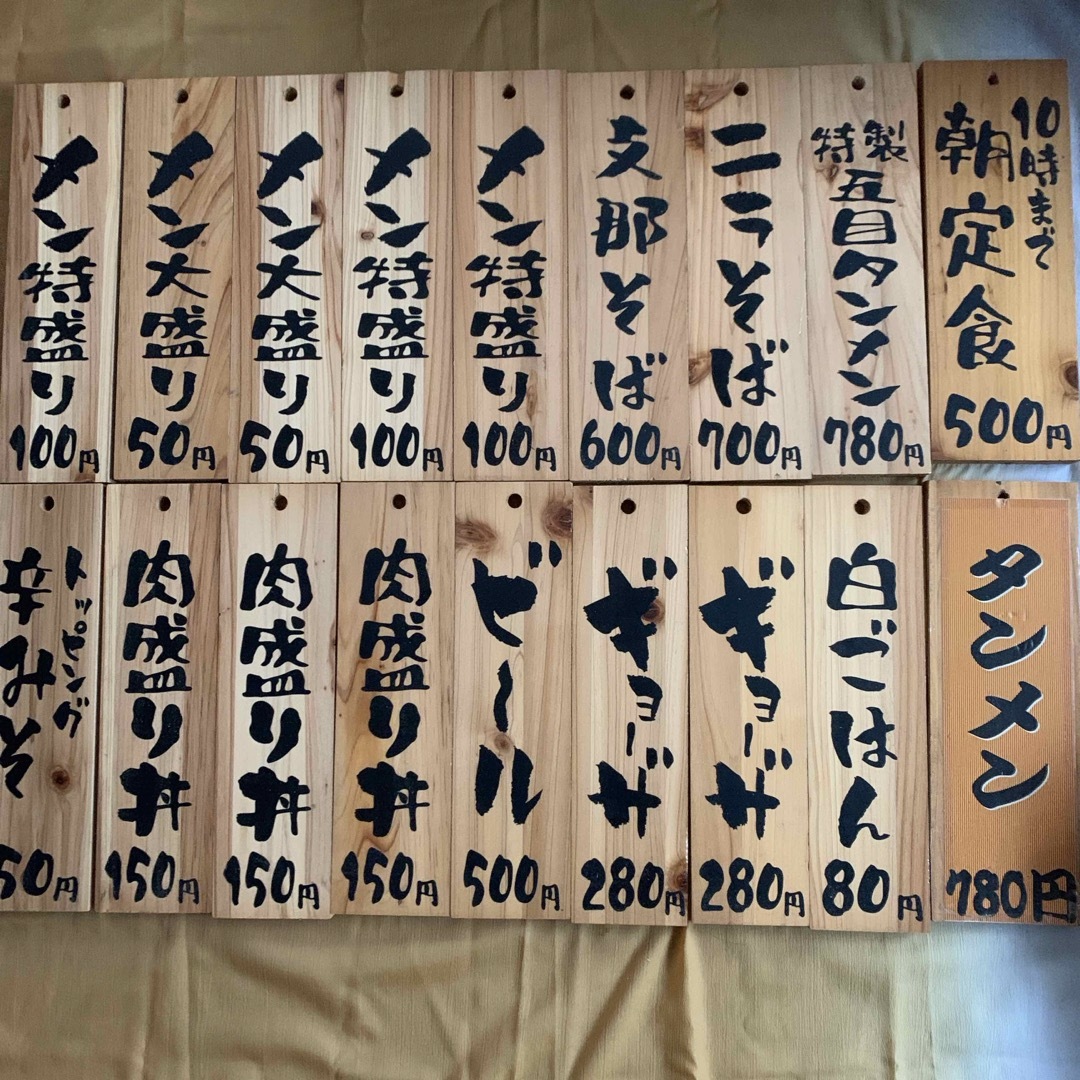 10時まで
朝定食
500円
特製
五目タンメン
780円
ニラそば
700円
支那そば
600円
メン特盛り
100円
メン特盛り
100円
メン大盛り
50円
メン大盛り
50円
メン特盛り
100円
タンメン
780円
白ごはん
80円
ギョーザ
280円
ギョーザ
280円
ビール
500円
肉盛り丼
150円
肉盛り丼
150円
肉盛り丼
150円
トッピング
辛みそ
50円